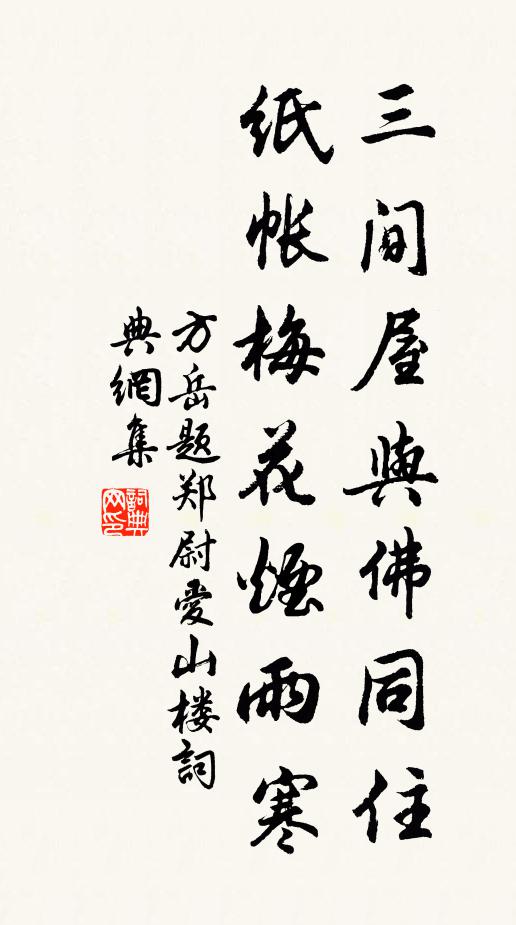 三间屋與佛同住
纸帐梅花煙雨寒
方岳题郑尉愛山楼詞
典網集
詞典网印